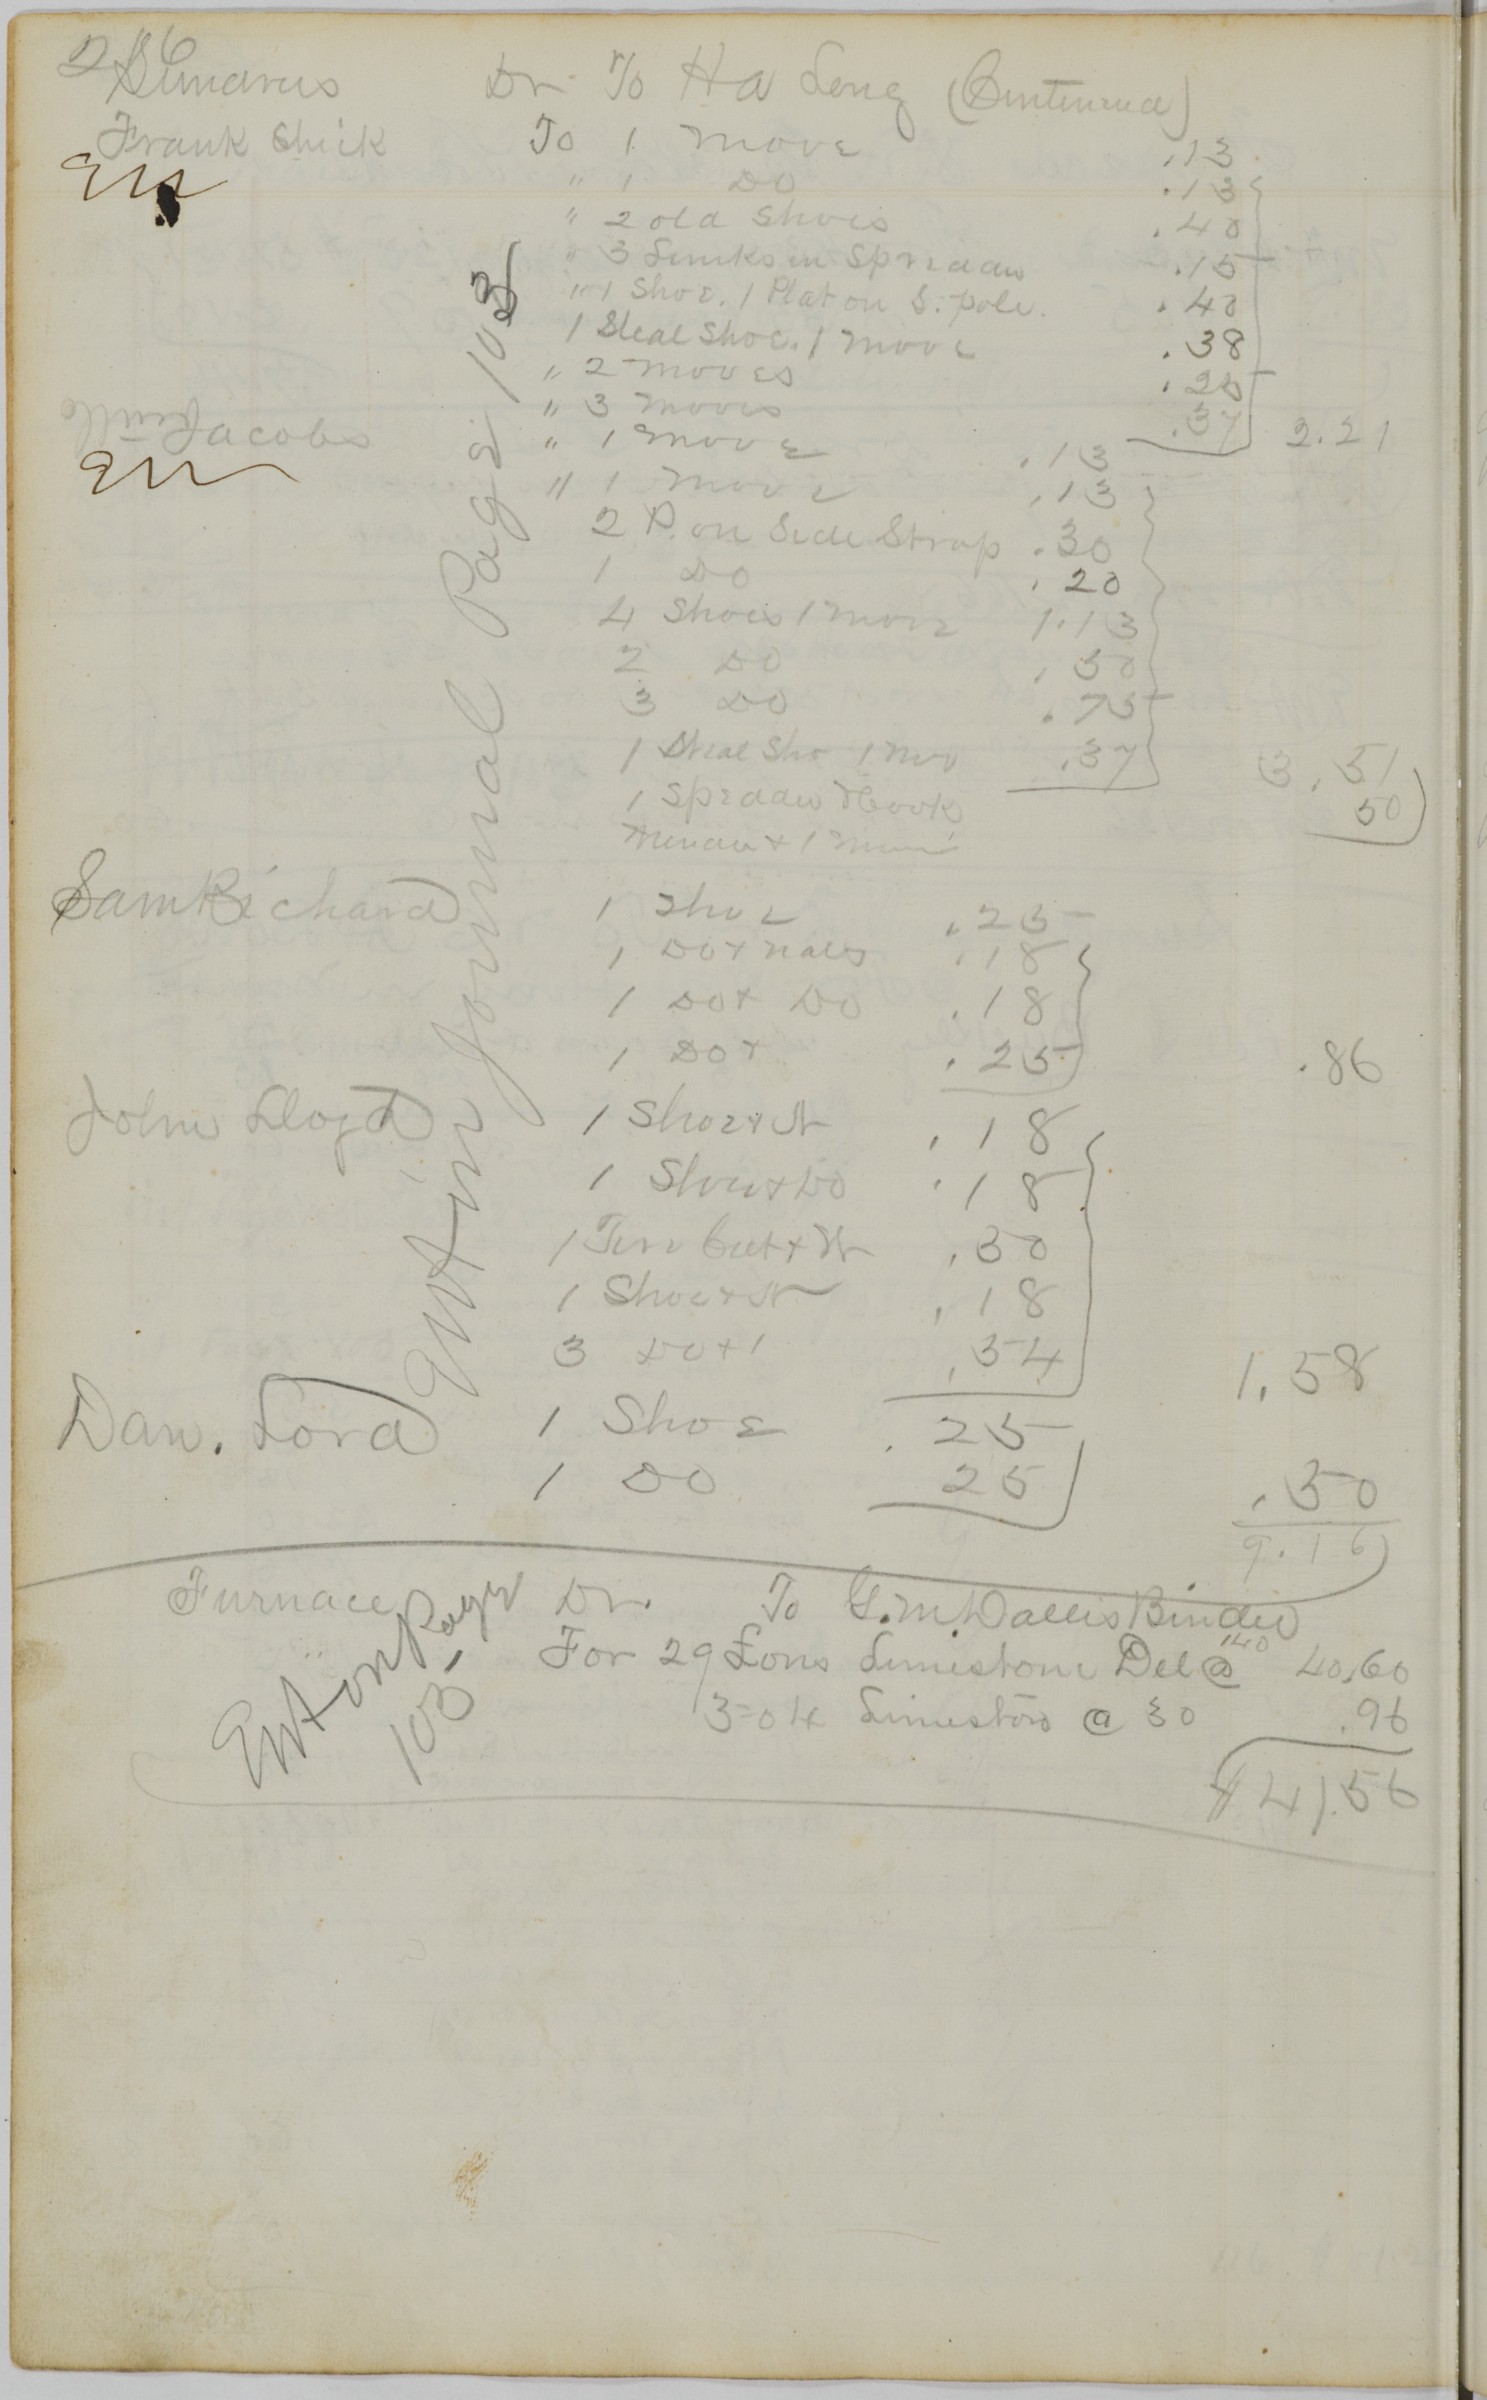 216
Sundries Dr To Ha Long (Continued)
Frank Shick To 1 Move .13
Ent " 1 Do .13
" 2 old Shoes .40
" 3 Links in Spreader .15
" 1 Shoe. 1 Plat on S. pole. .40
1 Steal Shoe. 1 Move .38
" 2 Moves .25
" 3 Moves .37 2.21
Jacobs " 1 Move .13
Ent " 1 Move .13
2 P. on Side Strap .30
1 Do .20
4 Shoes 1 Move 1.13
2 Do .50
3 Do .75
1 Steal Sho 1 Mov .37 3.51
1 Spreader Hook 50
+ 1
Sam Richard 1 Shoe .25
1 Do + nales .18
1 Do + Do .18
1 Do + .25 .86
John Lloyd 1 Shoe + N .18
1 Shoe + Do .18
1 + N .50
1 Shoe + N .18
3 Do + 1 .54 1.58
Dan. Lord 1 Shoe .25
1 Do 25 .50
9.16
Ent in Journal Page 103
Furnace Dr. To G.M. Dallis Binder
For 29 Tons Limestone Del @ 140 40.60
3-04 Limestone @ 30 .96
$41.56
Ent on Page 103